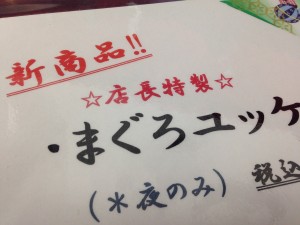 新商品!!
☆店長特製☆
・まぐろユッケ
(＊夜のみ)
税込